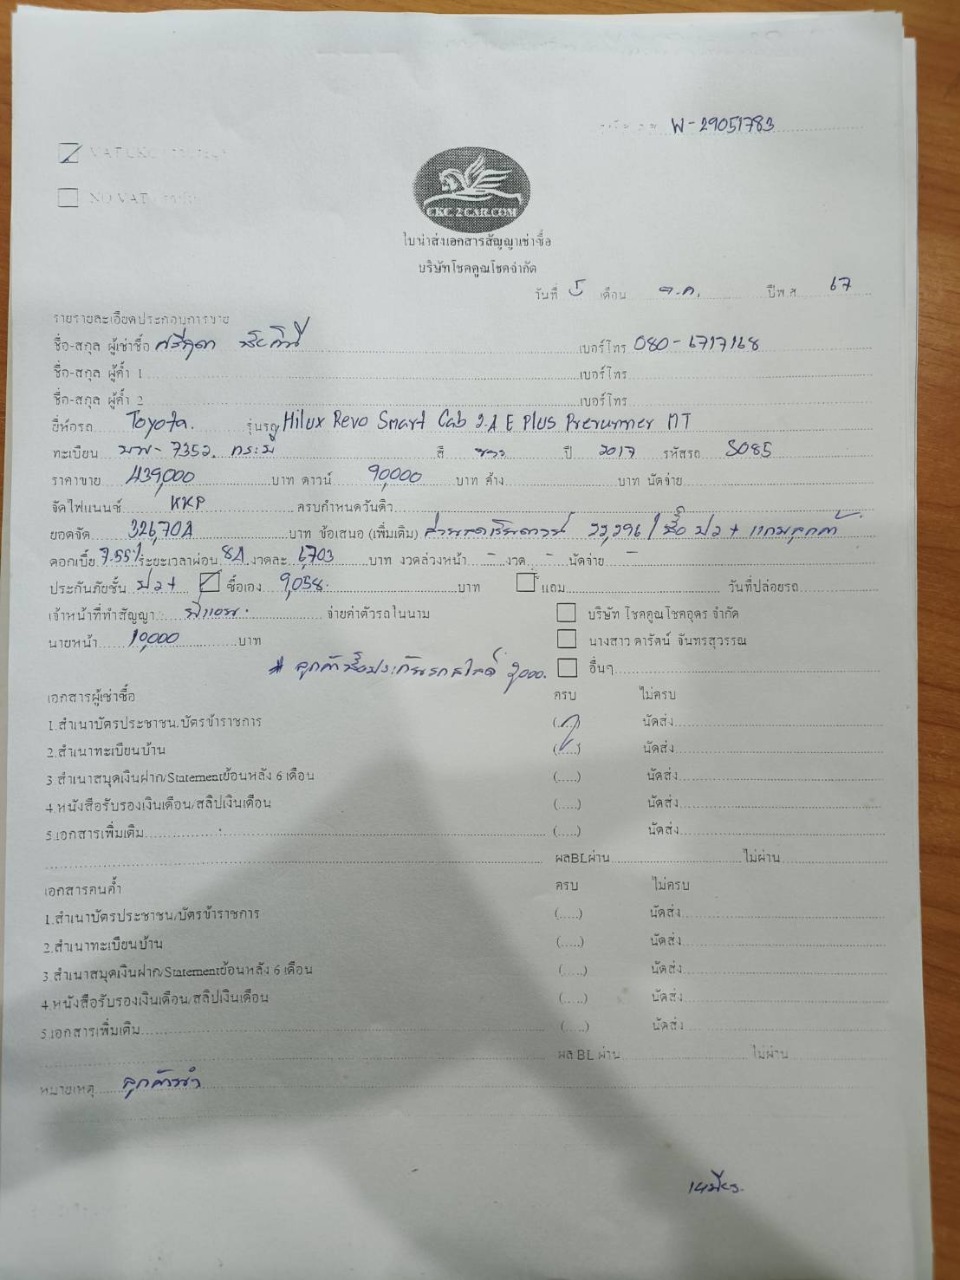 W-29051783
VAT
NO VAT
CKC 2 CAR.COM
ใบนำส่งเอกสารสัญญาเช่าซื้อ
บริษัทโชคคูณโชคจำกัด
วันที่ 5 เดือน ต.ค. ปีพ.ศ. 67
รายรายละเอียดประกอบการขาย
ชื่อ-สกุล ผู้เช่าซื้อ เบอร์โทร 080-6717168
ชื่อ-สกุล ผู้ค้ำ 1 เบอร์โทร
ชื่อ-สกุล ผู้ค้ำ 2 เบอร์โทร
ยี่ห้อรถ Toyota. รุ่นรถ Hilux Revo Smart Cab 2.4 E Plus Prerunner MT
ทะเบียน 7352 กระบี่ สี ขาว ปี 2017 รหัสรถ S085
ราคาขาย 439,000 บาท ดาวน์ 90,000 บาท ค้าง บาท นัดจ่าย
จัดไฟแนนซ์ KKP ครบกำหนดวันดิว
ยอดจัด 326,704 บาท ข้อเสนอ (เพิ่มเติม) ส่วนลดเงินดาวน์ 22,296 / ซื้อ ป2+ แถมลูกค้า
ดอกเบี้ย 7.55% ระยะเวลาผ่อน 84 งวดละ 6,703 บาท งวดล่วงหน้า - งวด - นัดจ่าย -
ประกันภัยชั้น ป2+ ซื้อเอง 9,058. บาท แถม วันที่ปล่อยรถ
เจ้าหน้าที่ทำสัญญา จ่ายค่าตัวรถในนาม บริษัท โชคคูณโชคอุดร จำกัด
นายหน้า 10,000 บาท นางสาว ดารัตน์ จันทรสุวรรณ
# ลูกค้าซื้อประกันรถสไลด์ 2,000. อื่นๆ
เอกสารผู้เช่าซื้อ ครบ ไม่ครบ
1.สำเนาบัตรประชาชน/บัตรข้าราชการ (.....) นัดส่ง
2.สำเนาทะเบียนบ้าน (.....) นัดส่ง
3.สำเนาสมุดเงินฝาก/Statementย้อนหลัง 6 เดือน (.....) นัดส่ง
4.หนังสือรับรองเงินเดือน/สลิปเงินเดือน (.....) นัดส่ง
5.เอกสารเพิ่มเติม (.....) นัดส่ง
ผลBLผ่าน ไม่ผ่าน
เอกสารคนค้ำ ครบ ไม่ครบ
1.สำเนาบัตรประชาชน/บัตรข้าราชการ (.....) นัดส่ง
2.สำเนาทะเบียนบ้าน (.....) นัดส่ง
3.สำเนาสมุดเงินฝาก/Statementย้อนหลัง 6 เดือน (.....) นัดส่ง
4.หนังสือรับรองเงินเดือน/สลิปเงินเดือน (.....) นัดส่ง
5.เอกสารเพิ่มเติม (.....) นัดส่ง
ผล BL ผ่าน ไม่ผ่าน
หมายเหตุ ลูกค้า